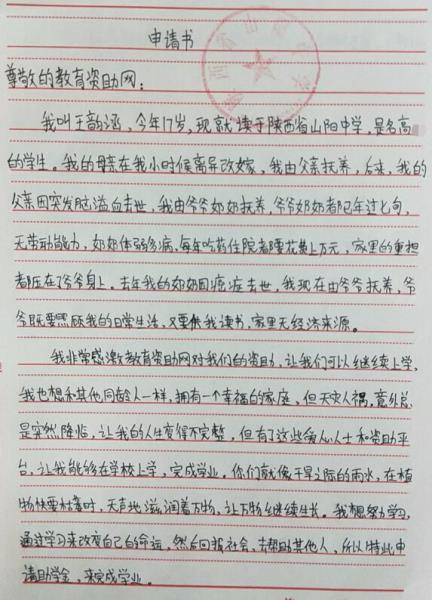 申请书
尊敬的教育资助网：
我叫王韵涵，今年17岁，现就读于陕西省山阳中学，是名高
的学生。我的母亲在我小时候离异改嫁，我由父亲抚养，后来，我的
父亲因突发脑溢血去世，我由爷爷奶奶抚养，爷爷奶奶都已年过七旬，
无劳动能力，奶奶体弱多病，每年吃药住院都要花费上万元，家里的重担
都压在了爷爷身上。去年我的奶奶因癌症去世，我现在由爷爷抚养，爷
爷既要照顾我的日常生活，又要供我读书，家里无经济来源。
我非常感激教育资助网对我们的资助，让我们可以继续上学，
我也想和其他同龄人一样，拥有一个幸福的家庭，但天灾人祸，意外总
是突然降临，让我的人生变得不完整，但有了这些爱心人士和资助平
台，让我能够在学校上学，完成学业。你们就像干旱之际的雨水，在植
物快要枯萎时，无声地滋润着万物，让万物继续生长。我想努力学习，
通过学习来改变自己的命运，然后回报社会，去帮助其他人，所以特此申
请助学金，来完成学业。